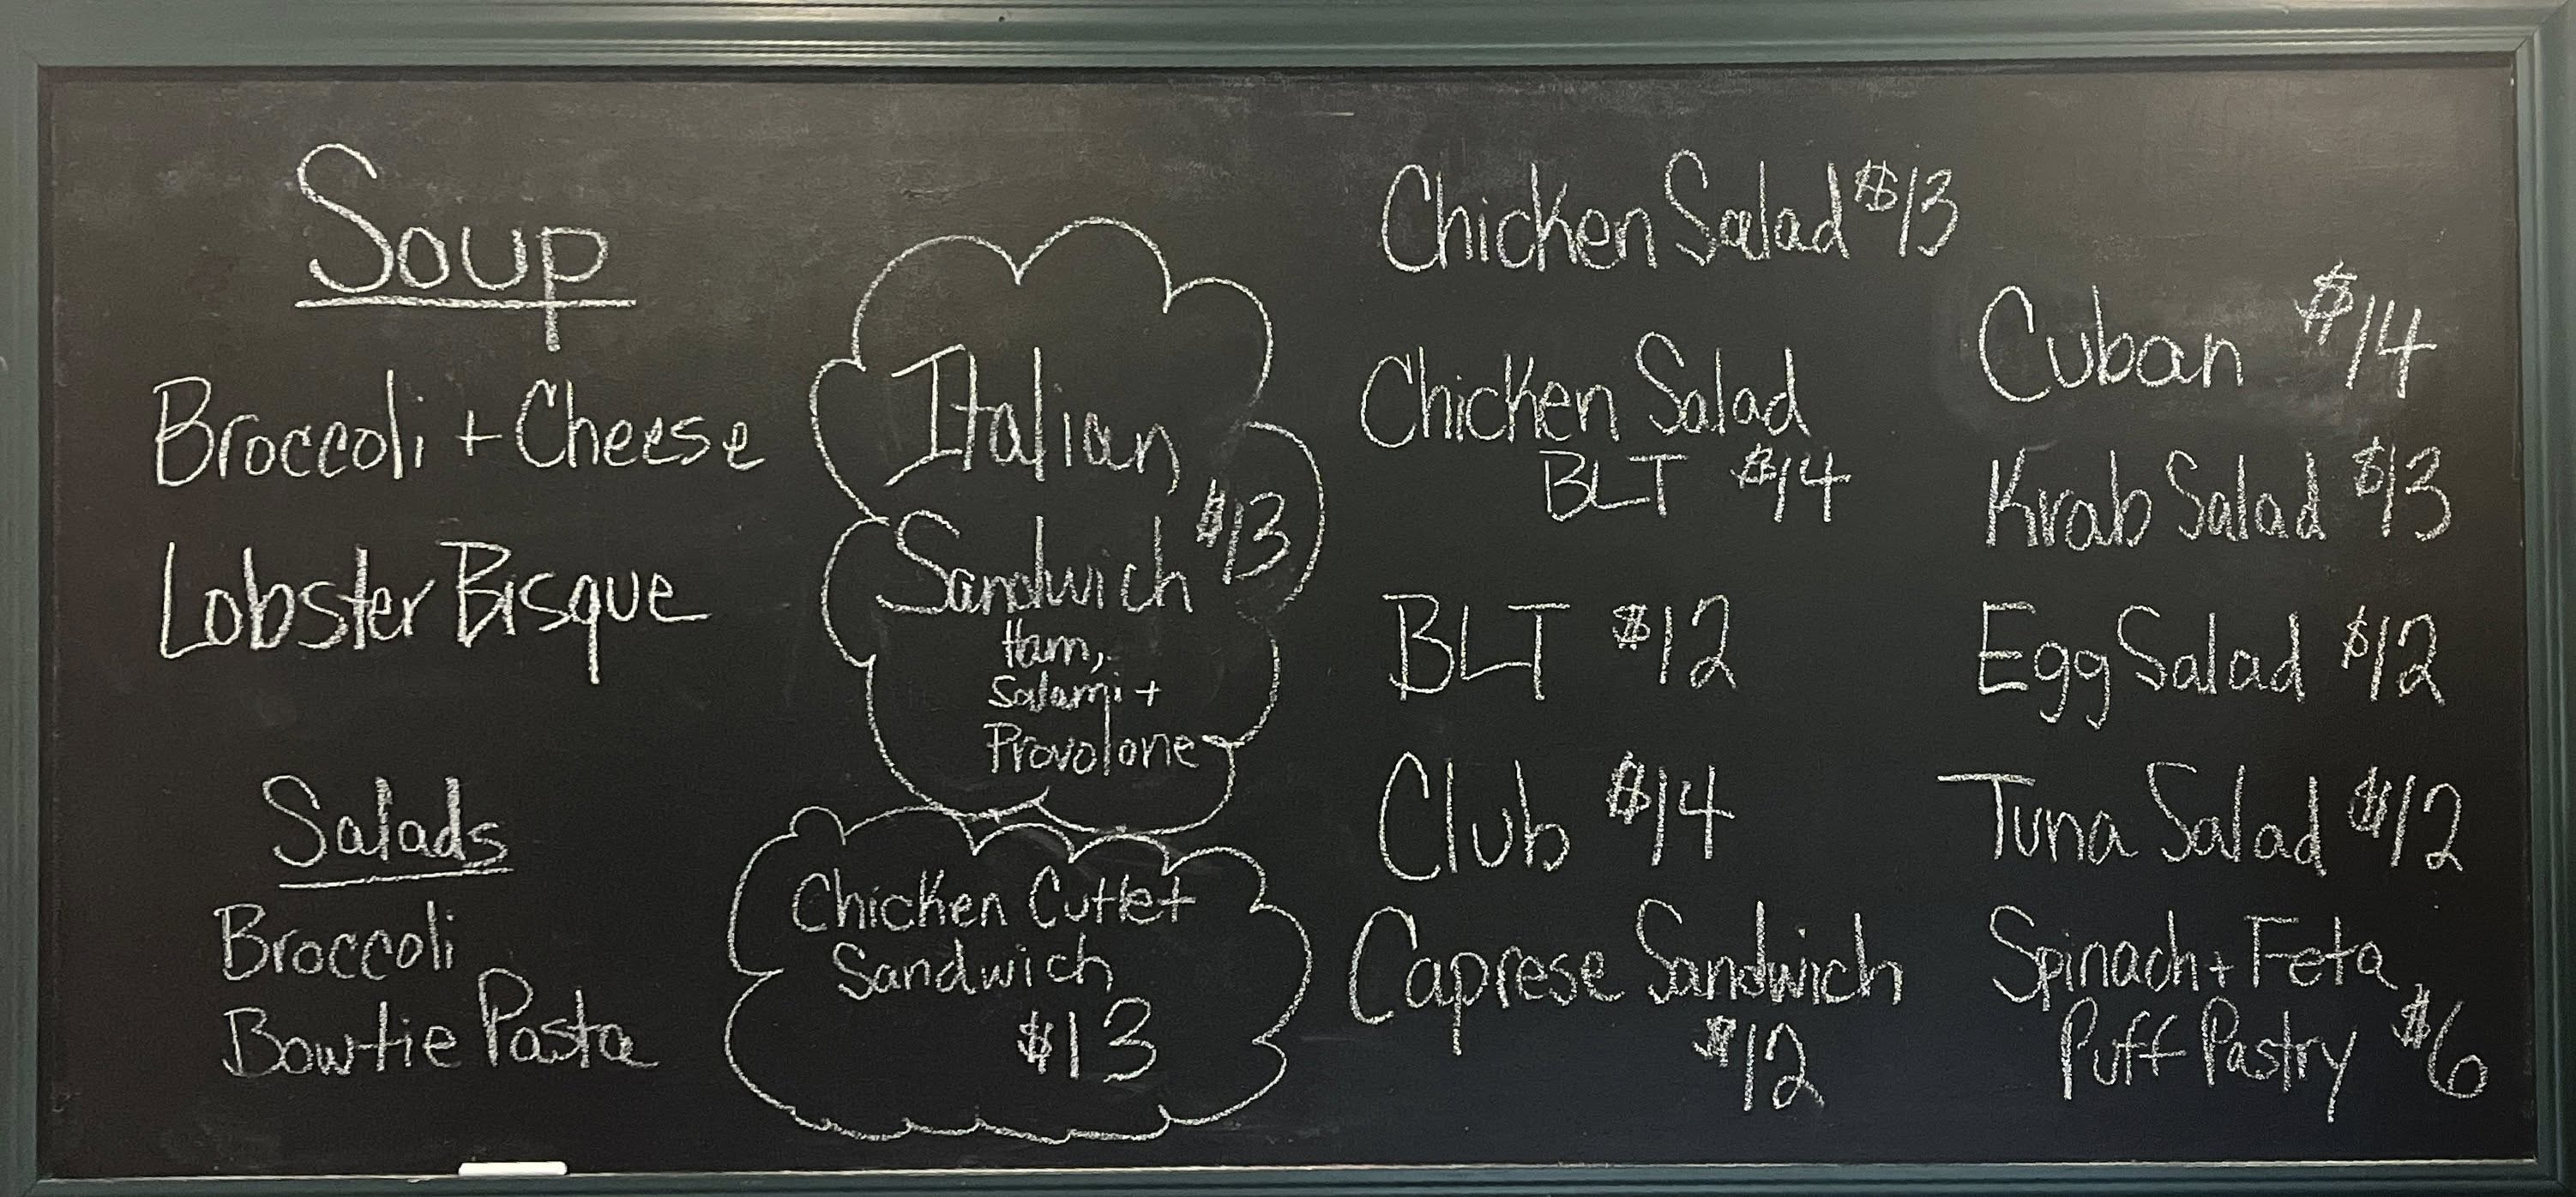 Soup
Broccoli + Cheese
Lobster Bisque
Salads
Broccoli
Bowtie Pasta
Italian
Sandwich $13
Ham,
Salami +
Provolone
Chicken Cutlet
Sandwich
$13
Chicken Salad $13
Chicken Salad
BLT $14
BLT $12
Club $14
Caprese Sandwich
$12
Cuban $14
Krab Salad $13
Egg Salad $12
Tuna Salad $12
Spinach + Feta
Puff Pastry $6